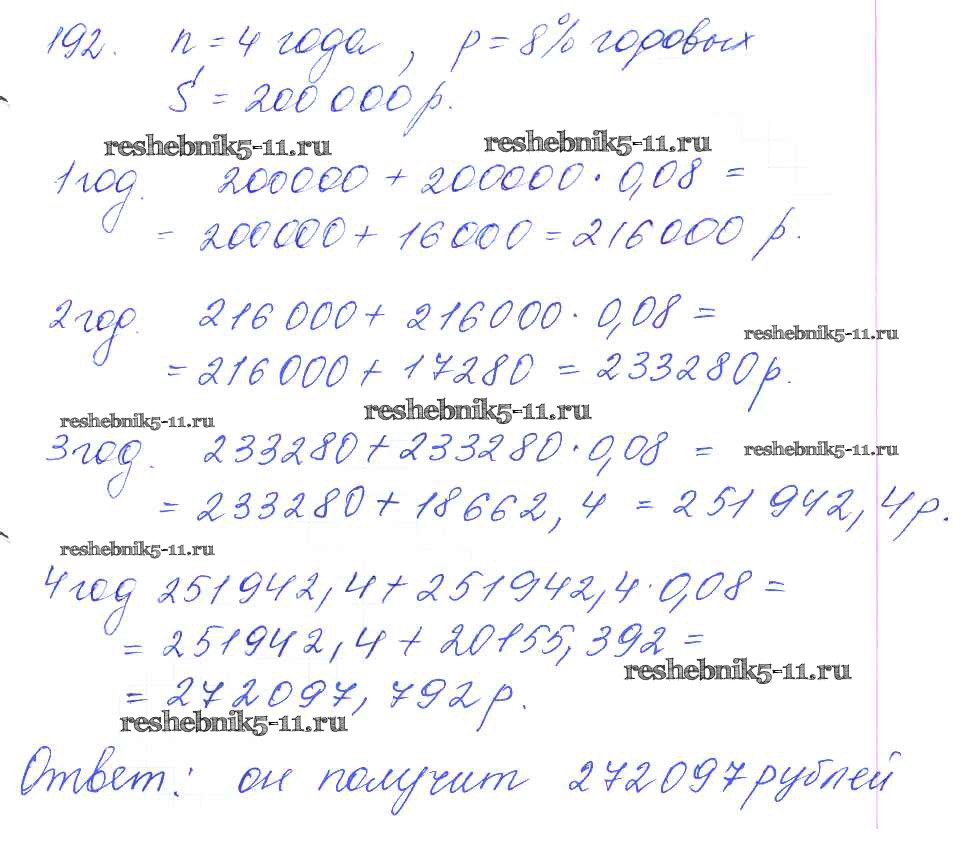 192. n = 4 года, p = 8% годовых
S = 200 000 р.
reshebnik5-11.ru reshebnik5-11.ru
1 год. 200000 + 200000 · 0,08 =
= 200000 + 16000 = 216000 р.
2 год. 216 000 + 216000 · 0,08 =
reshebnik5-11.ru
= 216000 + 17280 = 233280 р.
reshebnik5-11.ru reshebnik5-11.ru
3 год. 233280 + 233280 · 0,08 =
reshebnik5-11.ru
= 233280 + 18662,4 = 251 942,4 р.
reshebnik5-11.ru
4 год 251942,4 + 251942,4 · 0,08 =
= 251942,4 + 20155,392 =
reshebnik5-11.ru
= 272097,792 р.
reshebnik5-11.ru
Ответ: он получит 272097 рублей